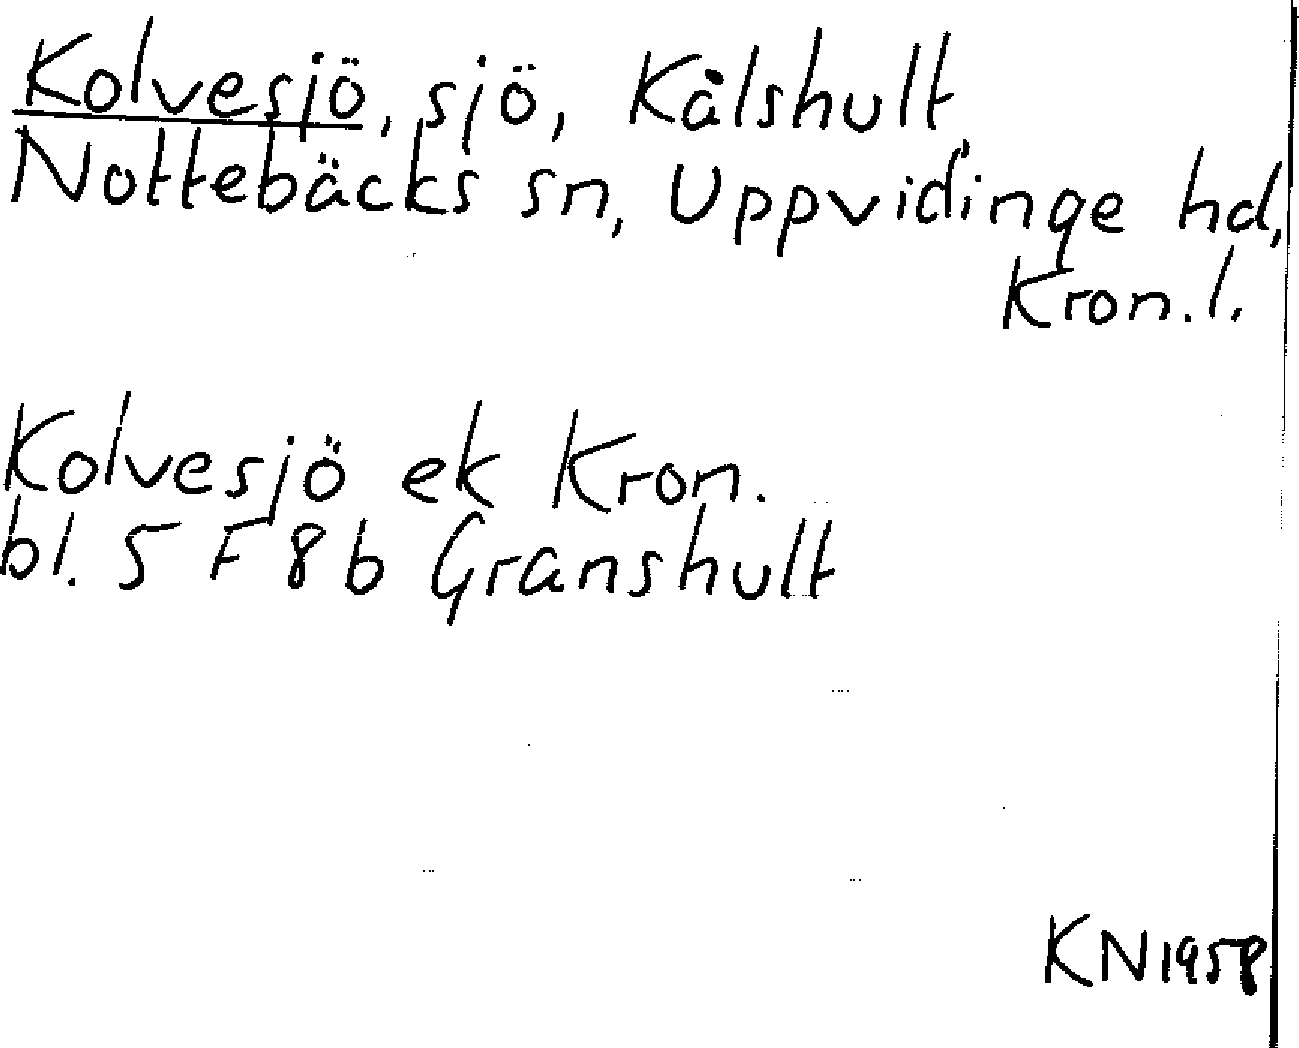 Kolvesjö, sjö, Kålshult,
Nottebäcks sn, Uppvidinge hd,
Kron. l.
Kolvesjö ek Kron.
bl. 5 F 8 b Granshult
KN 1958